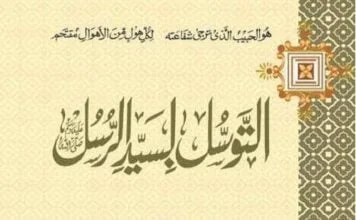 هو الحبيب الذی ترجی شفاعته لکل هول من الأهوال مقتحم
التوسل بسيد الرسل ﷺ